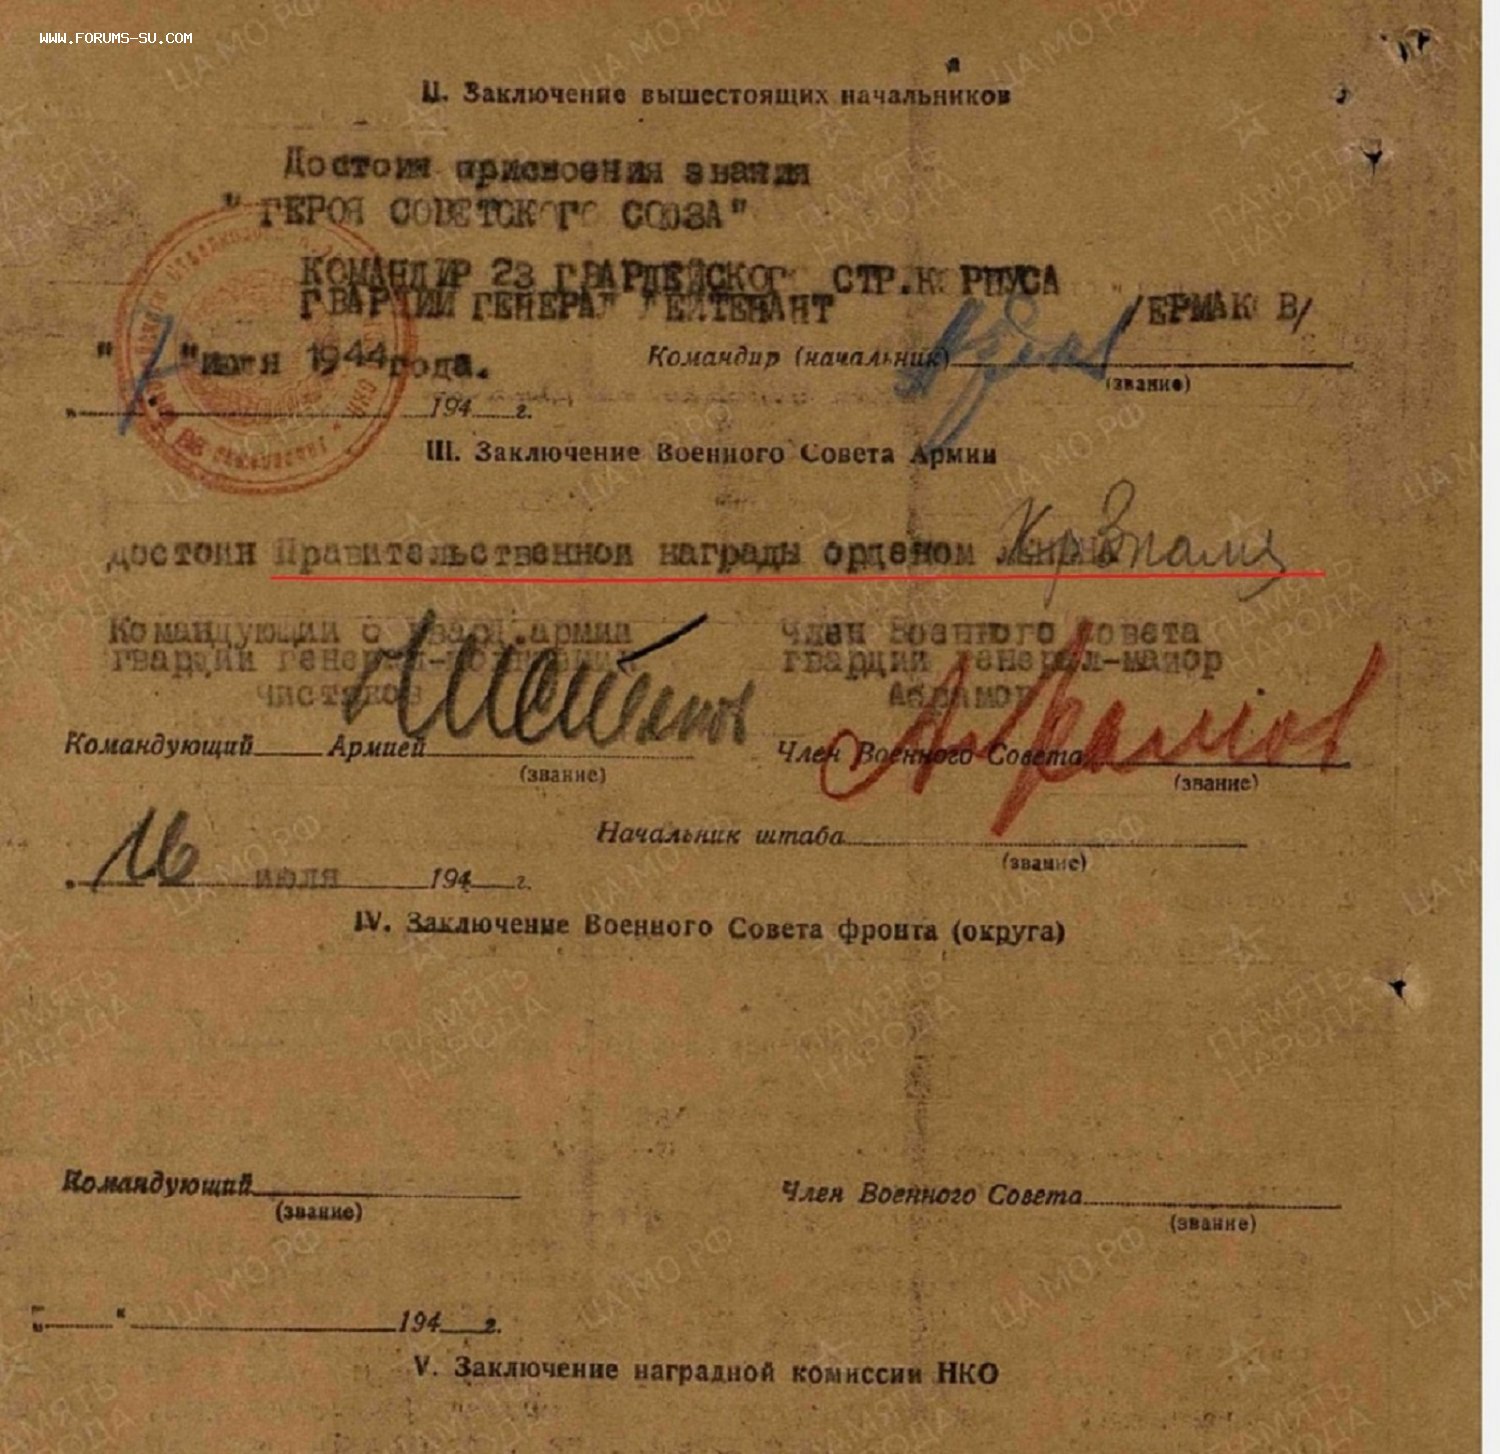 WWW.FORUMS-SU.COM
II. Заключение вышестоящих начальников
Достоин присвоения звания
"ГЕРОЯ СОВЕТСКОГО СОЮЗА"
КОМАНДИР 23 ГВАРДЕЙСКОГО СТР.КОРПУСА
ГВАРДИИ ГЕНЕРАЛ ЛЕЙТЕНАНТ /ЕРМАКОВ/
"7" июля 1944 года. Командир (начальник)
(звание)
194 г.
III. Заключение Военного Совета Армии
достоин Правительственной награды орденом Ленина Кр Знамя
Командующий 6 гвард.армии Член Военного Совета
гвардии генерал- гвардии генерал-майор
Чистяков Абрамов
Командующий Армией Член Военного Совета
(звание) (звание)
Начальник штаба
(звание)
16 июля 194 г.
IV. Заключение Военного Совета фронта (округа)
Командующий Член Военного Совета
(звание) (звание)
" " 194 г.
V. Заключение наградной комиссии НКО
ПАМЯТЬ НАРОДА
ЦА МО РФ